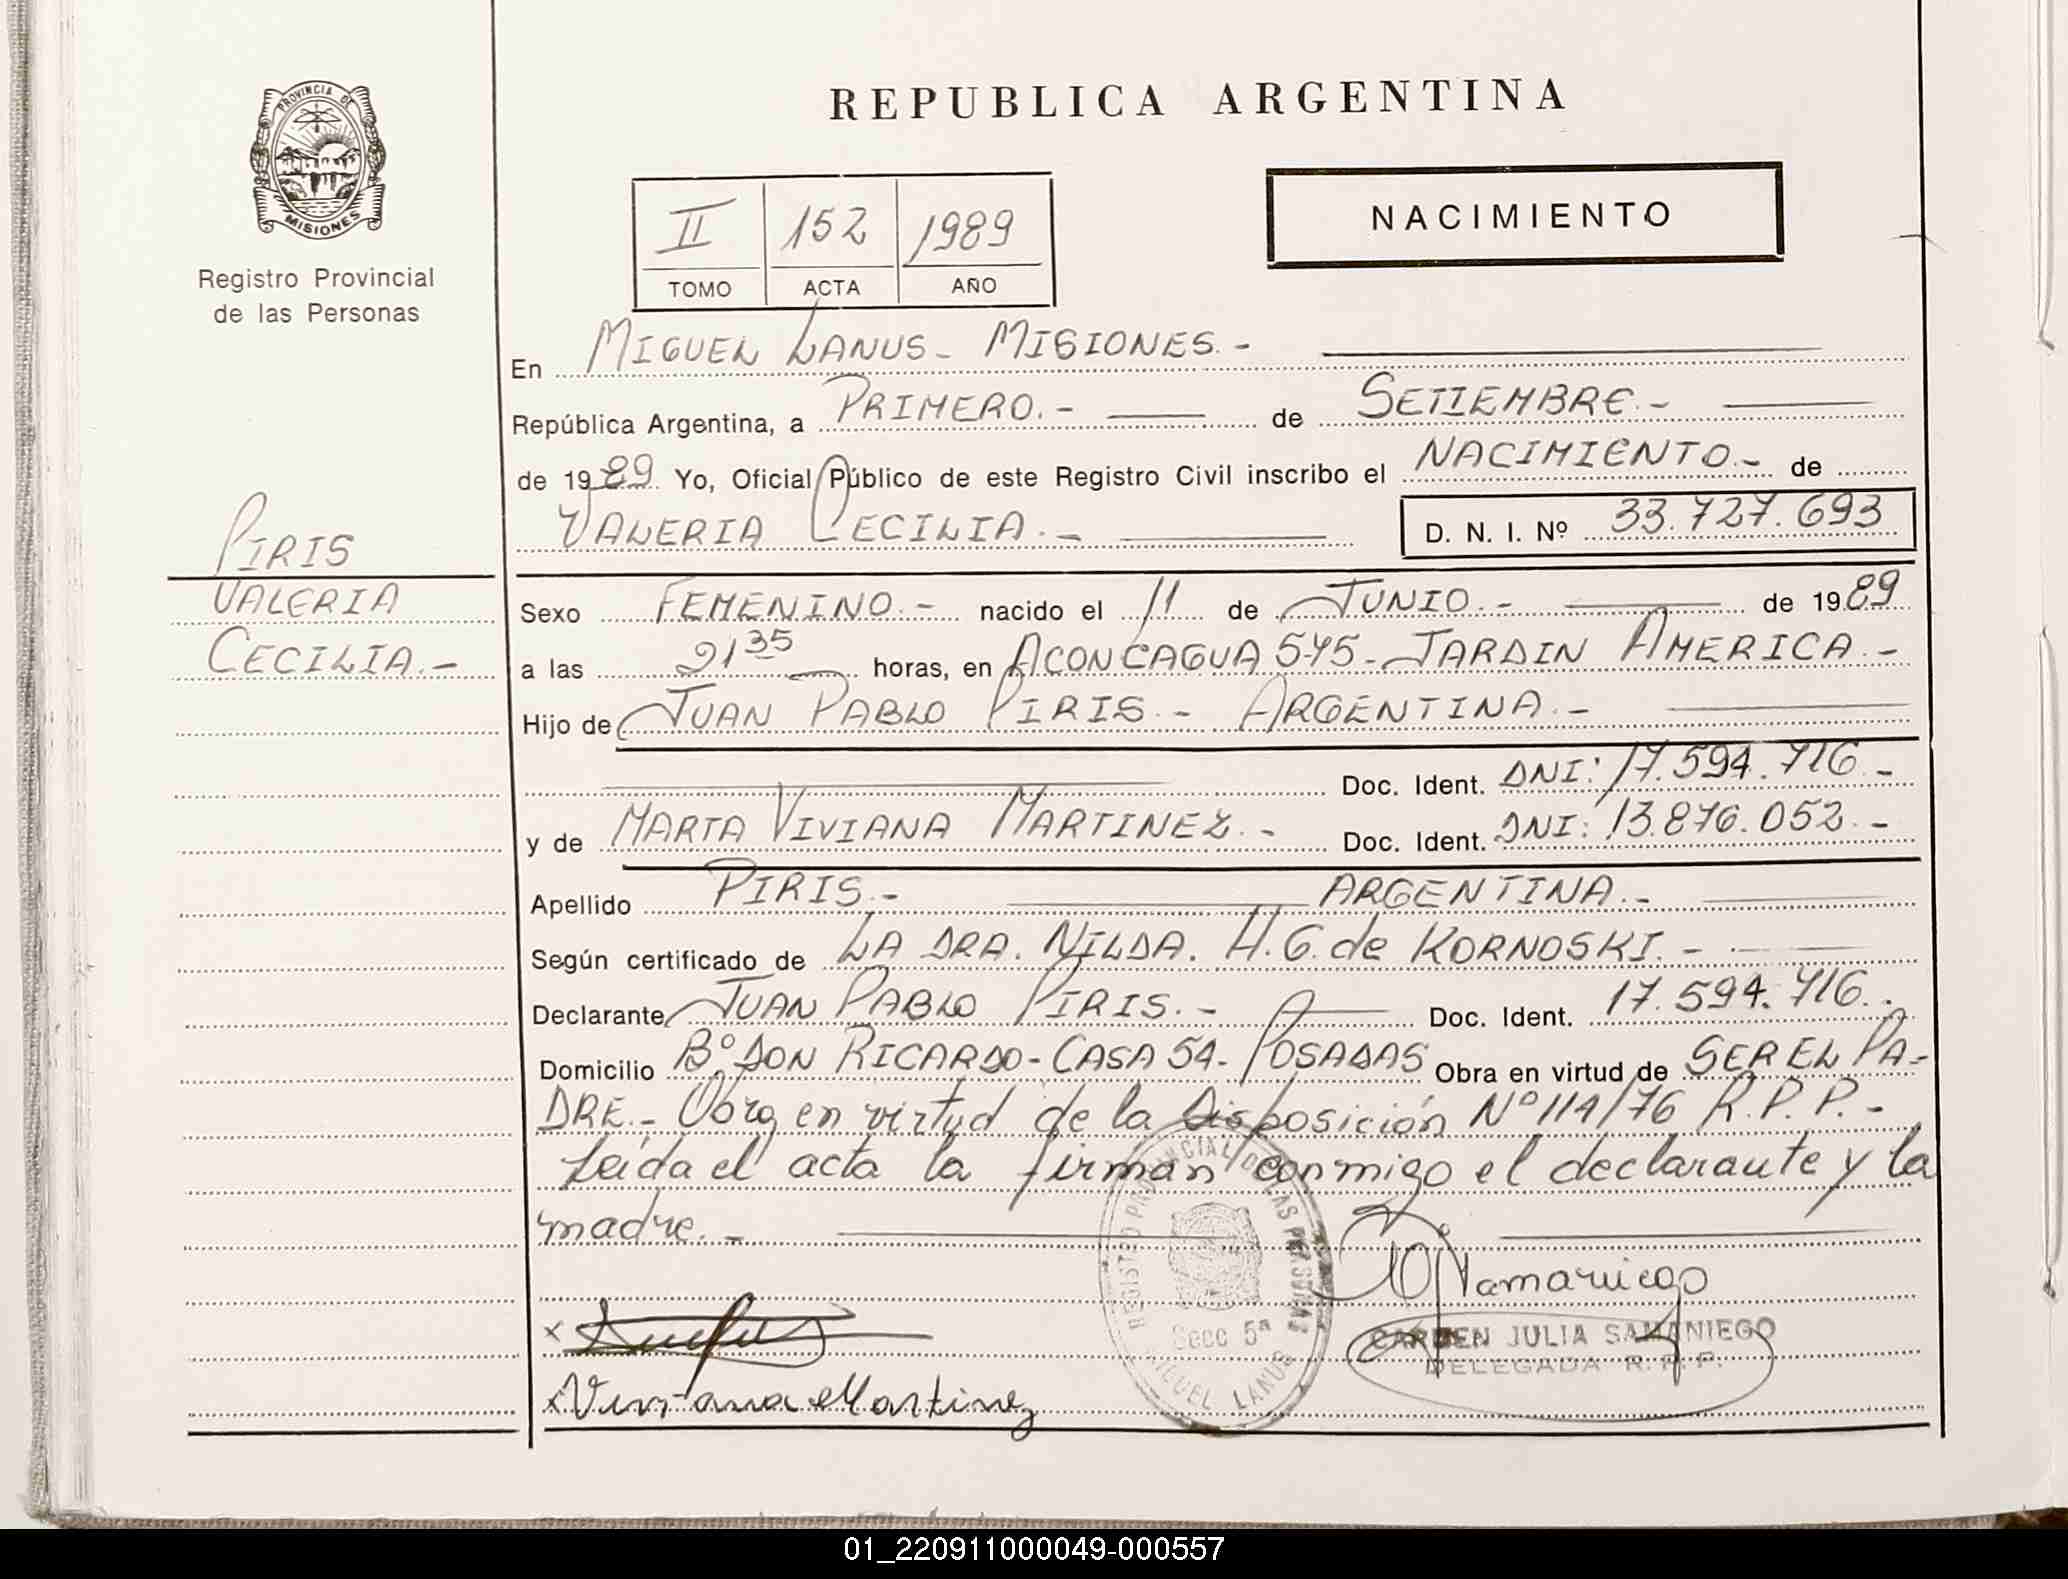 PROVINCIA DE
MISIONES
Registro Provincial
de las Personas
PIRIS
VALERIA
CECILIA.-
REPUBLICA ARGENTINA
II 152 1989
TOMO ACTA AÑO
NACIMIENTO
En MIGUEL LANUS - MISIONES.-
República Argentina, a PRIMERO.- de SETIEMBRE.-
de 1989 Yo, Oficial Público de este Registro Civil inscribo el NACIMIENTO.- de
VALERIA CECILIA.- D. N. I. Nº 33.727.693
Sexo FEMENINO.- nacido el 11 de JUNIO.- de 1989
a las 21 35 horas, en ACONCAGUA 545- JARDIN AMERICA.-
Hijo de JUAN PABLO PIRIS.- ARGENTINA.-
Doc. Ident. DNI: 17.594.716.-
y de MARTA VIVIANA MARTINEZ.- Doc. Ident. DNI: 13.876.052.-
Apellido PIRIS.- ARGENTINA.-
Según certificado de LA DRA. NILDA. H. G. de KORNOSKI.-
Declarante JUAN PABLO PIRIS.- Doc. Ident. 17.594.716.
Domicilio Bº DON RICARDO- CASA 54- POSADAS Obra en virtud de SER EL PA-
DRE.- Obra en virtud de la Disposición Nº 114/76 R.P.P.-
Leida el acta la firman conmigo el declarante y la
madre.-
REGISTRO PROVINCIAL DE LAS PERSONAS
Secc 5ª
MIGUEL LANUS
Samaniego
CARMEN JULIA SAMANIEGO
DELEGADA R. P. P.
x
x Viviana Martinez
01_220911000049-000557